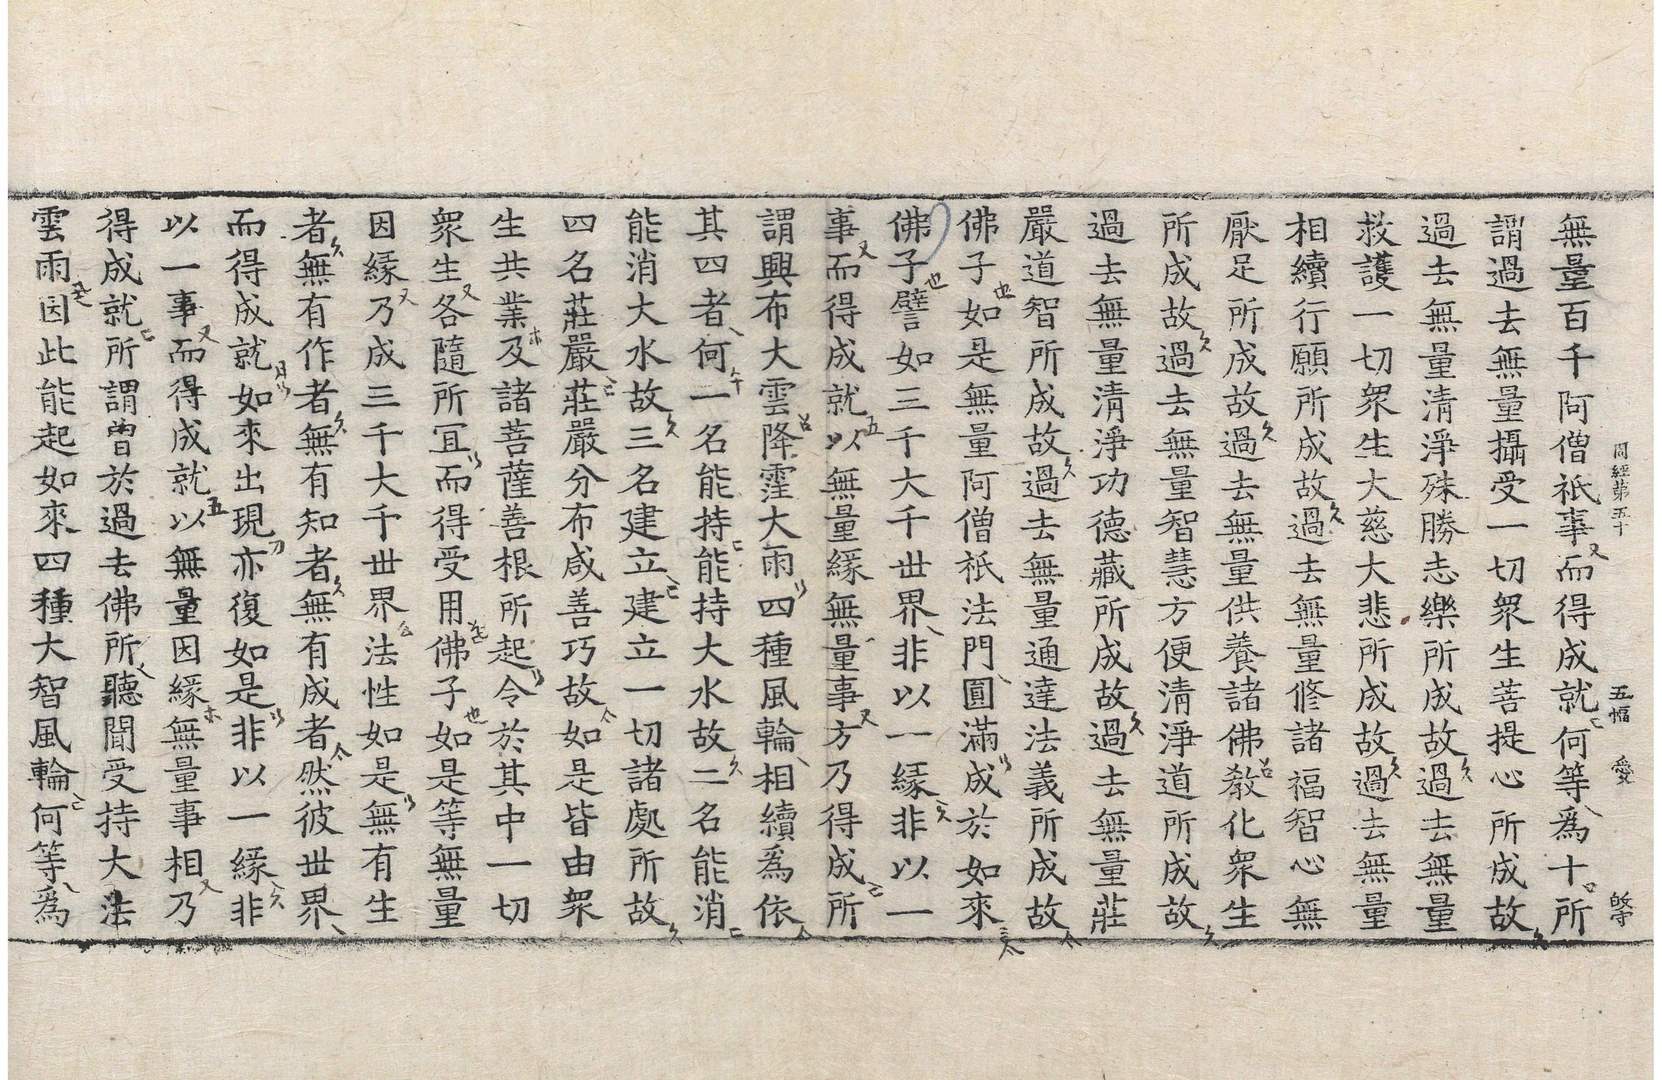 周經第五十　五幅　愛
無量百千阿僧祇事而得成就何等爲十所
謂過去無量攝受一切衆生菩提心所成故
過去無量清淨殊勝志樂所成故過去無量
救護一切衆生大慈大悲所成故過去無量
相續行願所成故過去無量修諸福智心無
厭足所成故過去無量供養諸佛敎化衆生
所成故過去無量智慧方便清淨道所成故
過去無量清淨功德藏所成故過去無量莊
嚴道智所成故過去無量通達法義所成故
佛子如是無量阿僧祇法門圓滿成於如來
佛子譬如三千大千世界非以一緣非以一
事而得成就以無量緣無量事方乃得成所
謂興布大雲降霔大雨四種風輪相續爲依
其四者何一名能持能持大水故二名能消
能消大水故三名建立建立一切諸處所故
四名莊嚴莊嚴分布咸善巧故如是皆由衆
生共業及諸菩薩善根所起令於其中一切
衆生各隨所冝而得受用佛子如是等無量
因緣乃成三千大千世界法性如是無有生
者無有作者無有知者無有成者然彼世界
而得成就如來出現亦復如是非以一緣非
以一事而得成就以無量因緣無量事相乃
得成就所謂曾於過去佛所聽聞受持大法
雲雨因此能起如來四種大智風輪何等爲